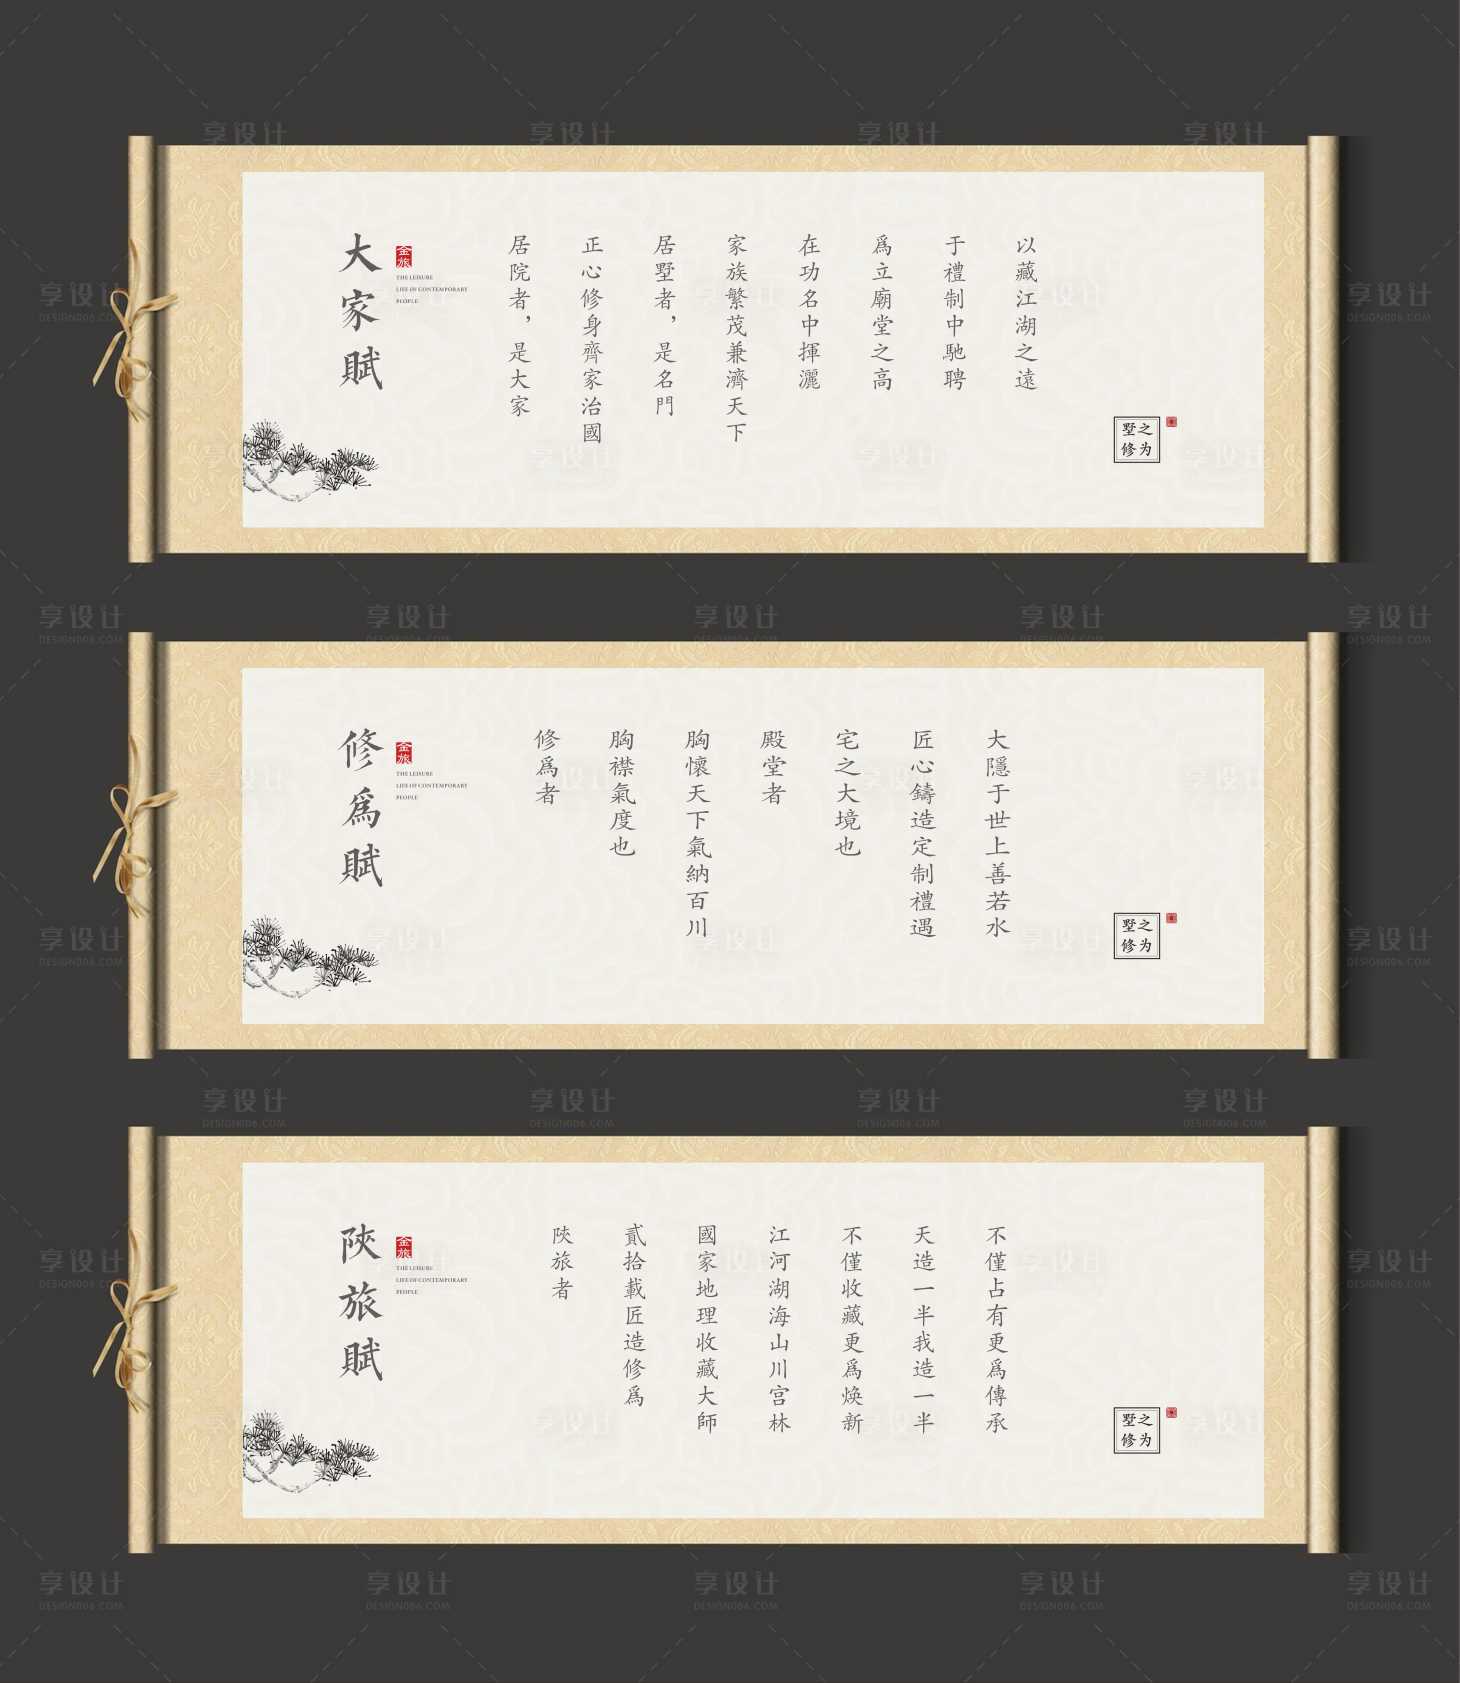 大家賦
金旅
THE LEISURE
LIFE OF CONTEMPORARY
PEOPLE
居院者，是大家
正心修身齊家治國
居墅者，是名門
家族繁茂兼濟天下
在功名中揮灑
爲立廟堂之高
于禮制中馳聘
以藏江湖之遠
墅之
修为
修爲賦
金旅
THE LEISURE
LIFE OF CONTEMPORARY
PEOPLE
修爲者
胸襟氣度也
胸懷天下氣納百川
殿堂者
宅之大境也
匠心鑄造定制禮遇
大隱于世上善若水
墅之
修为
陝旅賦
金旅
THE LEISURE
LIFE OF CONTEMPORARY
PEOPLE
陝旅者
貳拾載匠造修爲
國家地理收藏大師
江河湖海山川宫林
不僅收藏更爲焕新
天造一半我造一半
不僅占有更爲傳承
墅之
修为
享设计
DESIGN006.COM